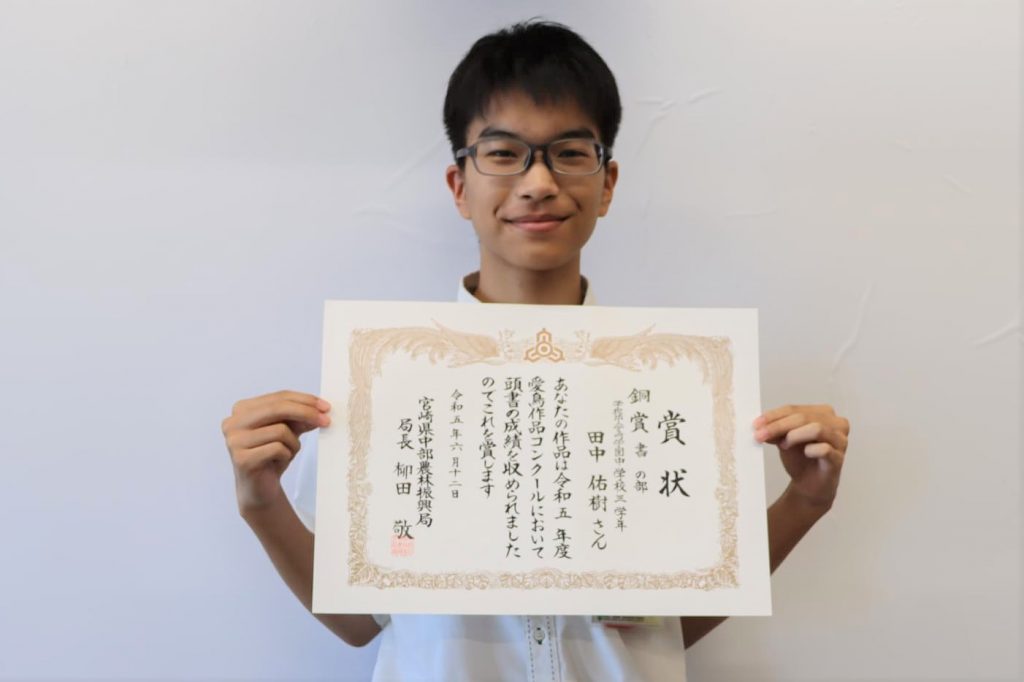 賞状
銅賞 書の部
学年
田中 佑樹さん
あなたの作品は令和五年度
愛鳥作品コンクールにおいて
頭書の成績を収められました
のでこれを賞します
令和五年六月十二日
宮崎県中部農林振興局
局長 柳田 敬